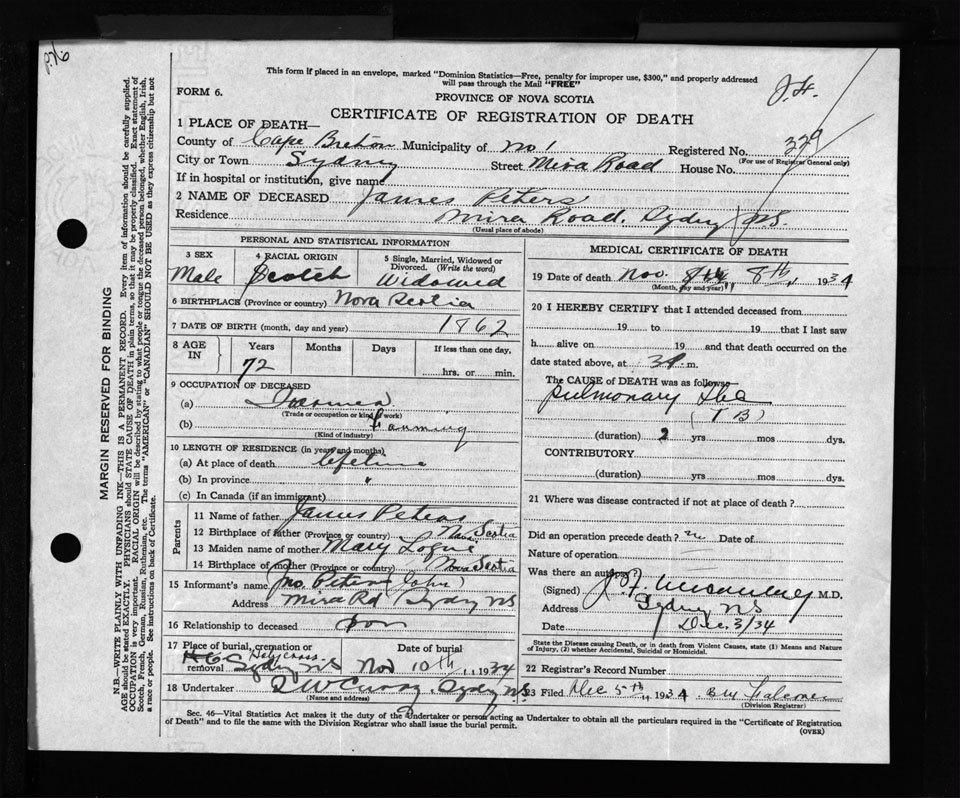 P.76
This form if placed in an envelope, marked "Dominion Statistics—Free, penalty for improper use, $300," and properly addressed
will pass through the Mail "FREE"
J.H.
FORM 6.
PROVINCE OF NOVA SCOTIA
CERTIFICATE OF REGISTRATION OF DEATH
1 PLACE OF DEATH—
County of Cape Breton Municipality of No 1 Registered No. 329
(For use of Registrar General only)
City or Town Sydney Street Mira Road House No.
If in hospital or institution, give name
2 NAME OF DECEASED James Peters
Residence Mira Road, Sydney N.S.
(Usual place of abode)
PERSONAL AND STATISTICAL INFORMATION
3 SEX Male
4 RACIAL ORIGIN Scotch
5 Single, Married, Widowed or Divorced. (Write the word) Widowed
6 BIRTHPLACE (Province or country) Nova Scotia
7 DATE OF BIRTH (month, day and year) 1862
8 AGE IN Years Months Days If less than one day,
72 hrs. or min.
9 OCCUPATION OF DECEASED
(a) Farmer
(Trade or occupation or kind of work)
(b) Farming
(Kind of industry)
10 LENGTH OF RESIDENCE (in years and months)
(a) At place of death lifetime
(b) In province "
(c) In Canada (if an immigrant)
Parents
11 Name of father James Peters
12 Birthplace of father (Province or country) Nova Scotia
13 Maiden name of mother Mary Logue
14 Birthplace of mother (Province or country) Nova Scotia
15 Informant's name Jno. Peters (John)
Address Mira Rd Sydney NS
16 Relationship to deceased Son
17 Place of burial, cremation or removal Date of burial
H.C. Holy Cross Sydney N.S Nov 10th, 1934
18 Undertaker Sydney N.S.
(Name and address)
MEDICAL CERTIFICATE OF DEATH
19 Date of death Nov. 8th, 1934
(Month, day and year)
20 I HEREBY CERTIFY that I attended deceased from
19 to 19 that I last saw
h alive on 19 and that death occurred on the
date stated above, at 3 m.
The CAUSE of DEATH was as follows
Pulmonary Tbc
(TB)
(duration) 2 yrs mos dys.
CONTRIBUTORY
(duration) yrs mos dys.
21 Where was disease contracted if not at place of death?
Did an operation precede death? no Date of
Nature of operation
Was there an autopsy
(Signed) M.D.
Address Sydney N S
Date Dec. 3/34
State the Disease causing Death, or in death from Violent Causes, state (1) Means and Nature
of Injury, (2) whether Accidental, Suicidal or Homicidal.
22 Registrar's Record Number
23 Filed Dec 5th, 1934
(Division Registrar)
Sec. 46—Vital Statistics Act makes it the duty of the Undertaker or person acting as Undertaker to obtain all the particulars required in the "Certificate of Registration
of Death" and to file the same with the Division Registrar who shall issue the burial permit.
(OVER)
MARGIN RESERVED FOR BINDING
N.B.—WRITE PLAINLY WITH UNFADING INK—THIS IS A PERMANENT RECORD. Every item of information should be carefully supplied.
AGE should be stated EXACTLY. PHYSICIANS should STATE CAUSE OF DEATH in plain terms, so that it may be properly classified. Exact statement of
OCCUPATION is very important. RACIAL ORIGIN will be described by stating to what people or tongue the deceased person belonged, whether English, Irish,
Scotch, French, German, Russian, Ruthenian, etc. The terms "AMERICAN" or "CANADIAN" SHOULD NOT BE USED as they express citizenship but not
a race or people. See instructions on back of Certificate.